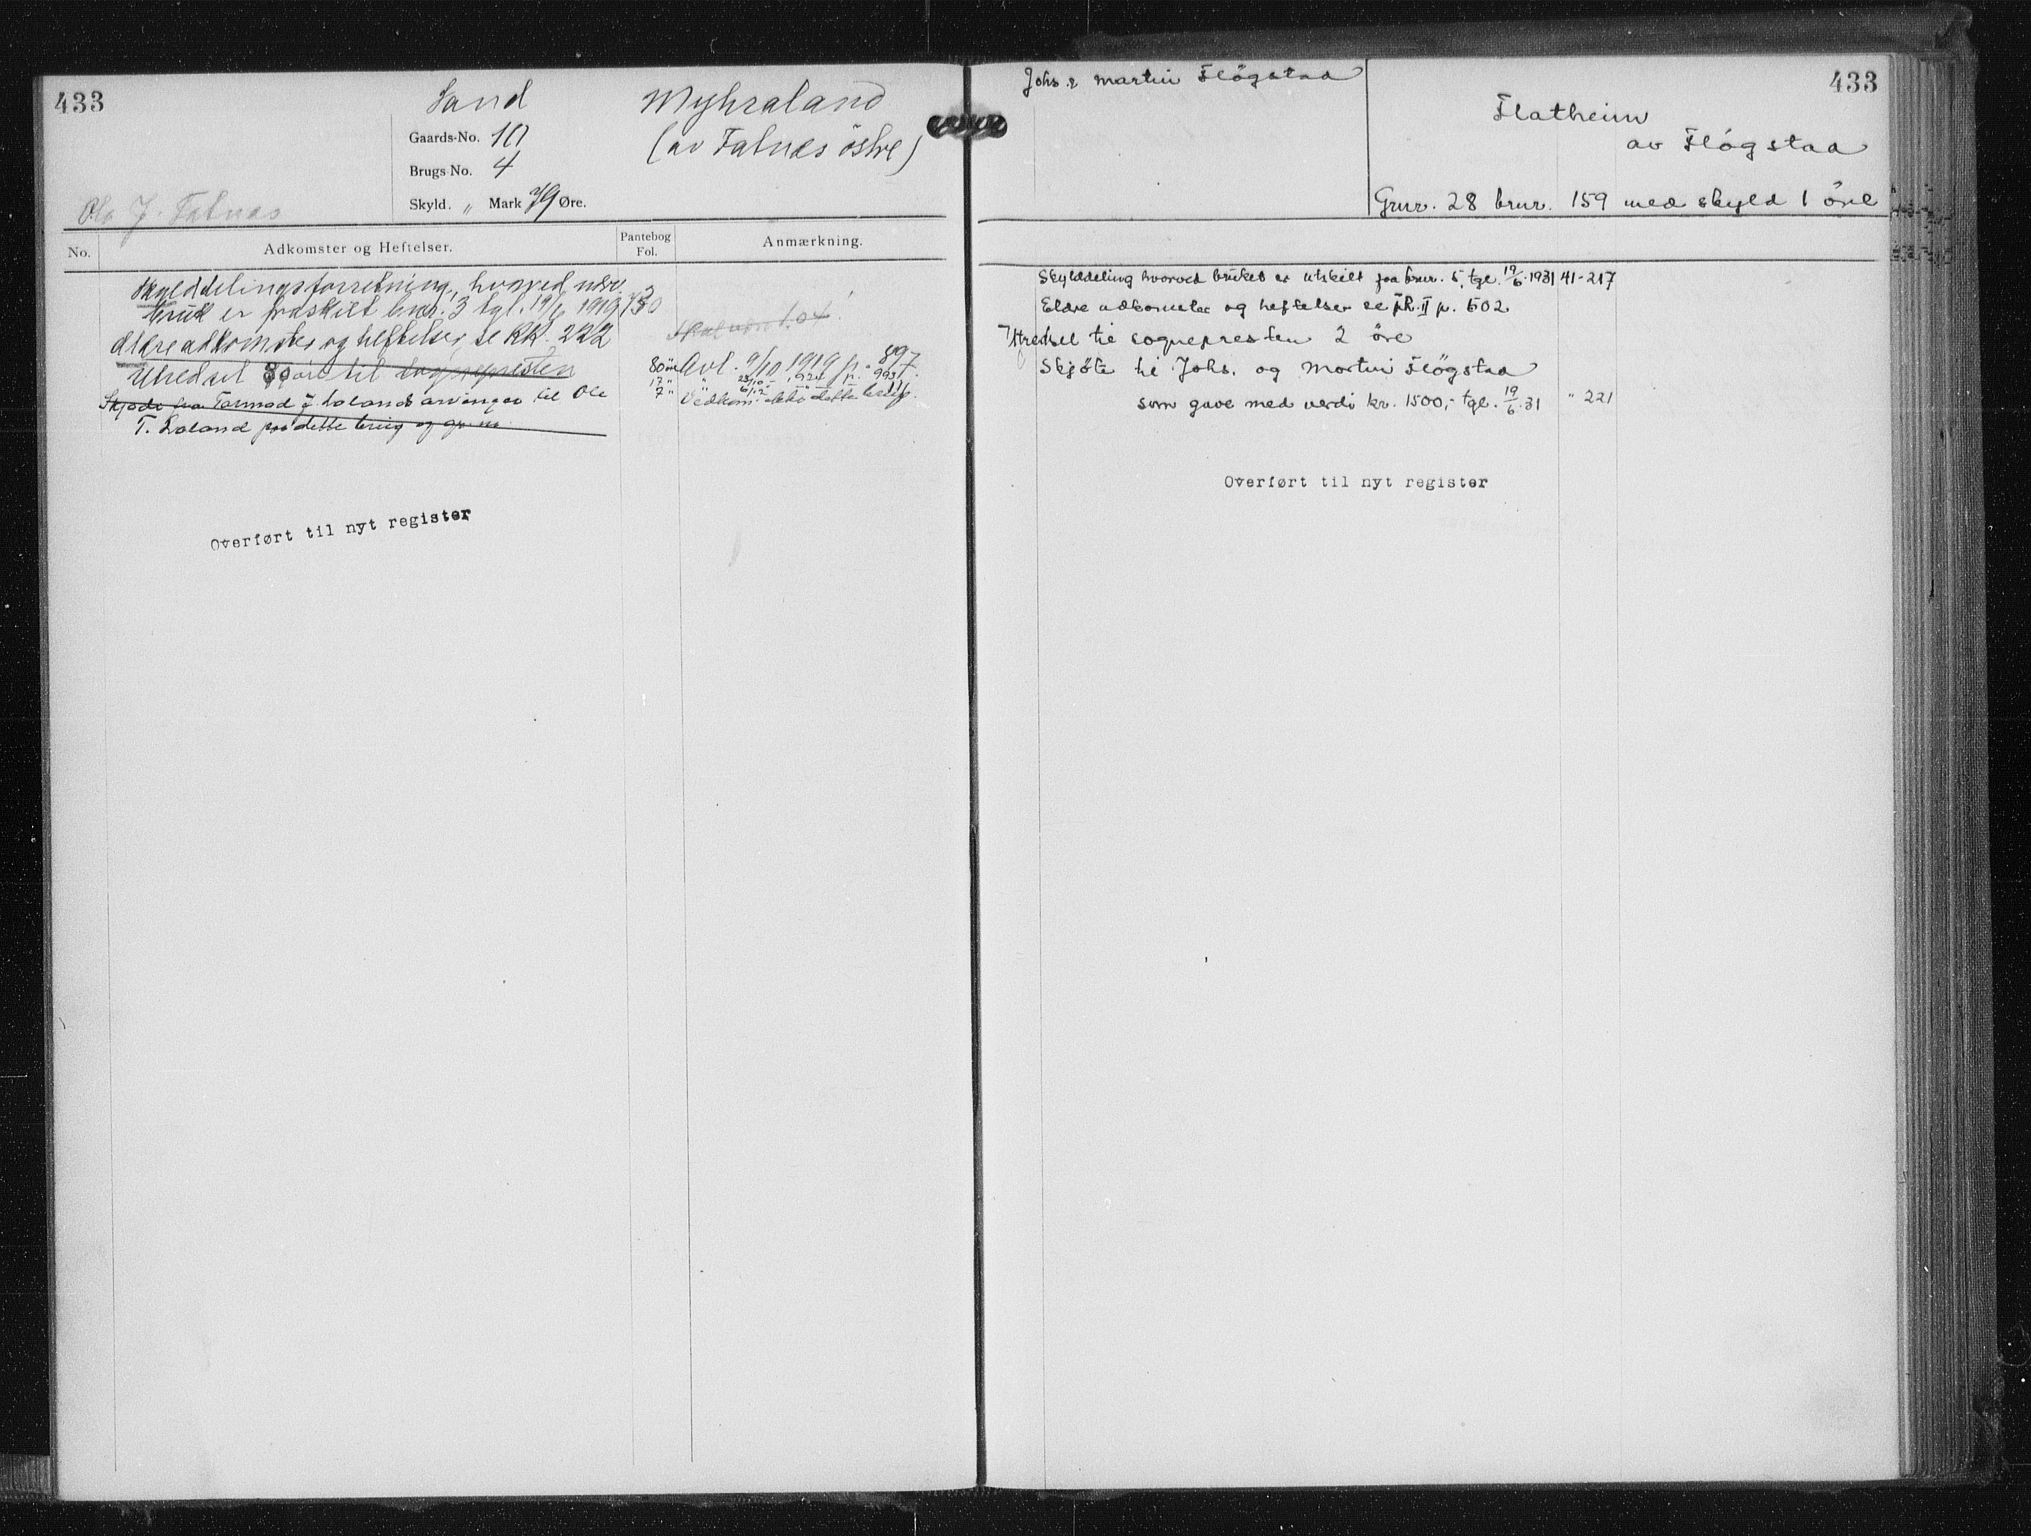 433
Sand
Myhraland
(av Fatnes östre)
Gaards-No. 10
Brugs No. 4
Skyld. „ Mark 79 Øre.
Ole J. Fatnes
No.
Adkomster og Heftelser.
Pantebog Fol.
Anmærkning.
Skylddelingsforretning, hvorved
bruk er fraskilt bnr. 3 tgl. 19/6 1919
ældre adkomster og heftelser se RR. 222
Utredsel 80 øre til sognepresten
Avl. 9/10 1919 p. 897.
Skjøde fra Tormod J. Lolands arvinger til Ole
T. Loland paa dette brug og gr. nr.
Vedkom. ikke dette brug.
Overført til nyt register
433
Johs. & Martin Fløgstad
Flatheim
av Fløgstad
Gnr. 28 bnr. 159 med skyld 1 öre
Skylddeling hvorved bruket er utskilt fra bnr. 5, tgl. 19/6 1931 41-217
Eldre adkomster og heftelser se pR. II p. 502
Utredsel til sognepresten 2 öre
Skjøte til Johs. og Martin Fløgstad
som gave med verdi kr. 1500,- tgl. 19/6.31 " 221
Overført til nyt register